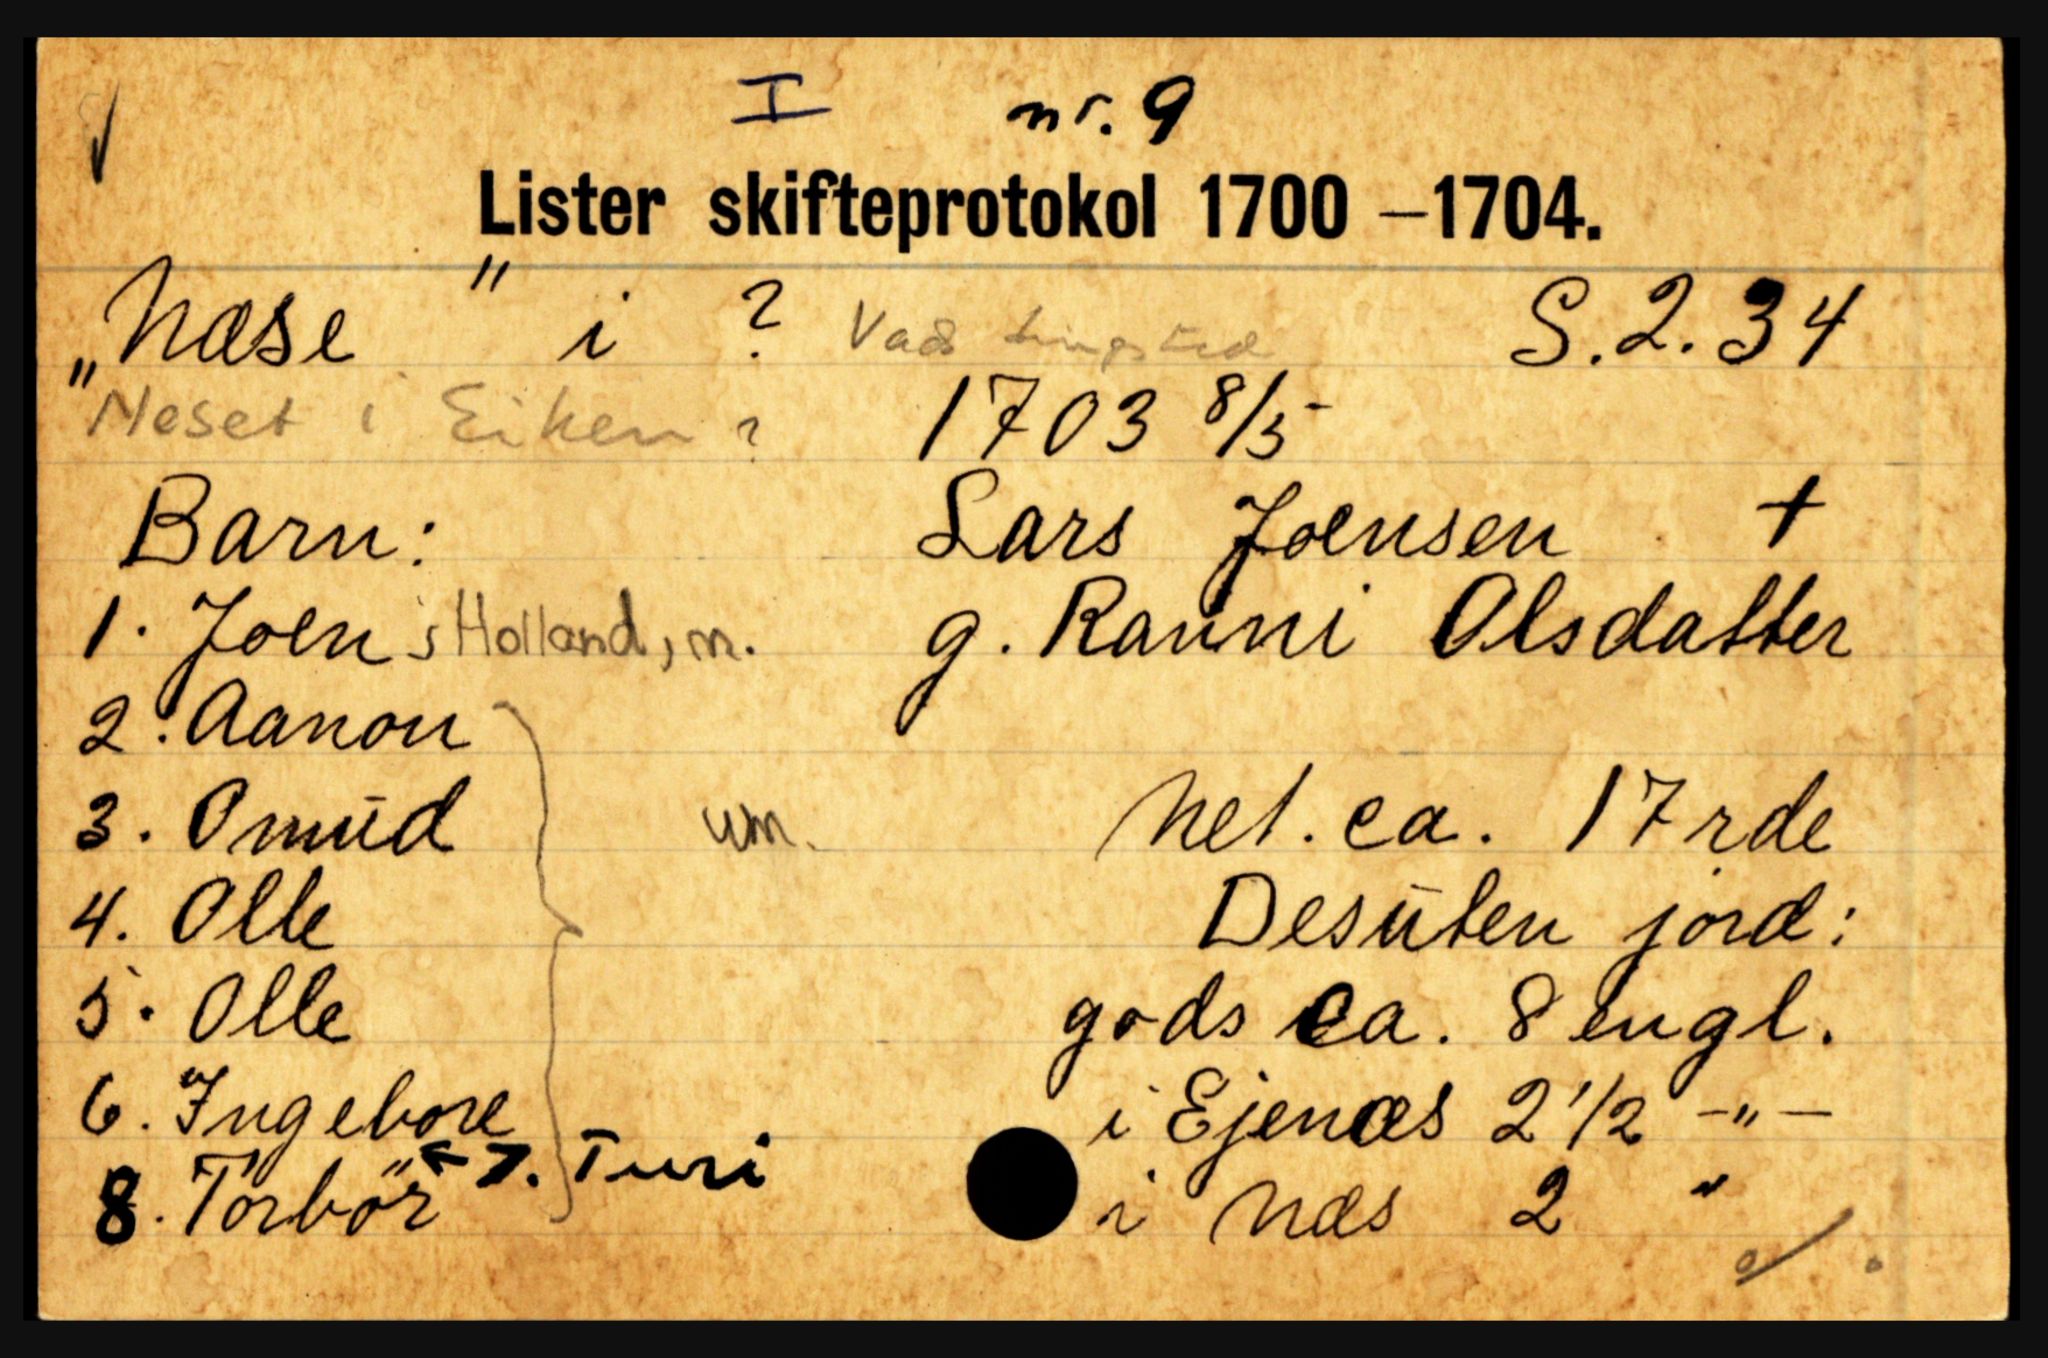 I nr. 9
Lister skifteprotokol 1700 –1704.
„Næse" i ? Vads tingsted S. 2.34
Neset i Eiken ? 1703 8/5
Barn: Lars Joensen +
1. Joen i Holland, m. g. Ranni Olsdatter
2. Aanon
3. Omund um. Net. ca. 17 rde
4. Olle Desuten jord:
5. Olle gods ca. 8 engl.
6. Ingebore i Ejenæs 2 1/2 –"–
← 7. Turi
8. Torbör i Næs 2 "